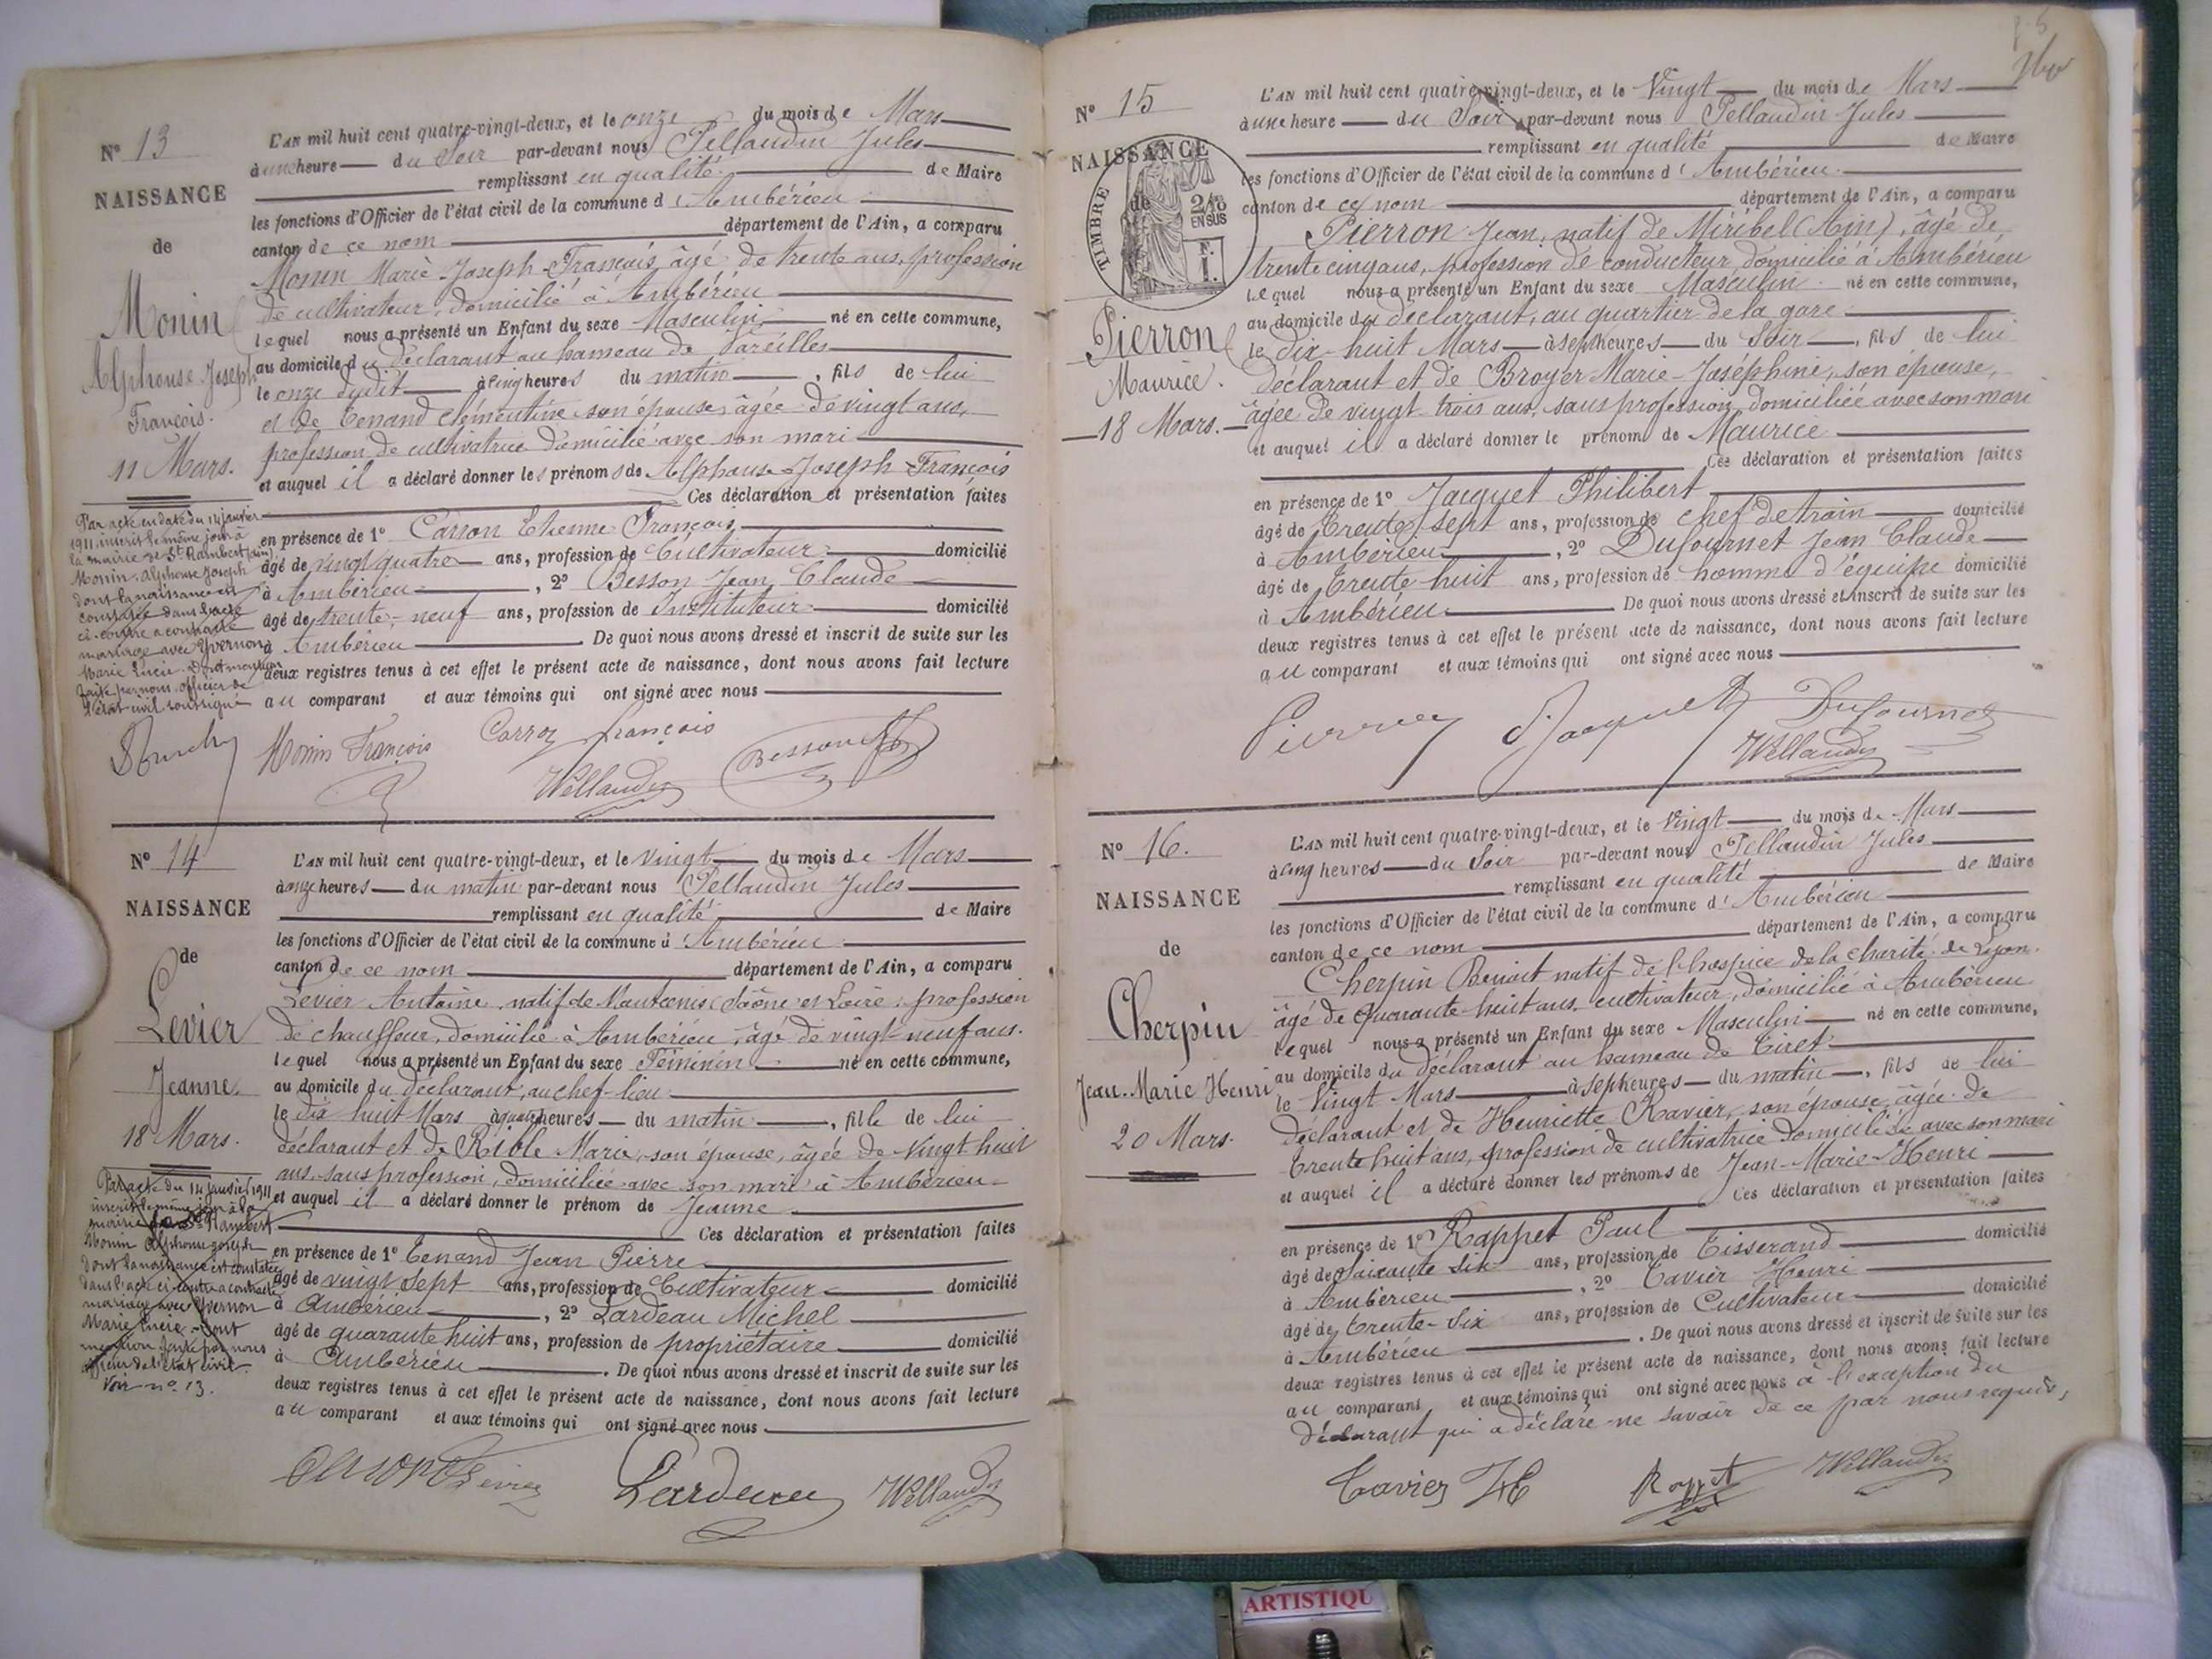 N° 13
NAISSANCE
de
Monin
Alphonse Joseph
François.
11 Mars.
Par acte en date du 14 janvier
1911, inscrit le même jour à
la mairie de St Rambert (Ain)
Monin, Alphonse Joseph
dont la naissance est
constatée dans l'acte
ci-contre a contracté
mariage avec Yvernon
Marie Lucie. Dont mention
faite par nous officier de
l'état civil soussigné
L'AN mil huit cent quatre-vingt-deux, et le onze du mois de Mars
à une heure du Soir par-devant nous Pellaudin Jules
remplissant en qualité de Maire
les fonctions d'Officier de l'état civil de la commune d'Ambérieu
canton de ce nom département de l'Ain, a comparu
Monin Marie Joseph-François, âgé de trente ans, profession
de cultivateur, domicilié à Ambérieu
lequel nous a présenté un Enfant du sexe Masculin né en cette commune,
au domicile du déclarant au hameau de Vareilles
le onze dudit à cinq heures du matin, fils de lui
et de Tenand Clémentine son épouse, âgée de vingt ans,
profession de cultivatrice domicilié avec son mari
et auquel il a déclaré donner les prénoms de Alphonse-Joseph-François
Ces déclaration et présentation faites
en présence de 1° Carron Etienne François
âgé de vingt quatre ans, profession de Cultivateur domicilié
à Ambérieu, 2° Besson Jean Claude
âgé de trente-neuf ans, profession de Instituteur domicilié
à Ambérieu De quoi nous avons dressé et inscrit de suite sur les
deux registres tenus à cet effet le présent acte de naissance, dont nous avons fait lecture
au comparant et aux témoins qui ont signé avec nous
Monin François Carron françois Besson
N° 14
NAISSANCE
de
Levier
Jeanne.
18 Mars.
Par acte du 14 janvier 1911
inscrit le même jour à la
mairie de St Rambert
Monin Alphonse Joseph
dont la naissance est constatée
dans l'acte ci-contre a contracté
mariage avec Yvernon
Marie Lucie. Dont
mention faite par nous
officier de l'état civil.
Voir n° 13.
L'AN mil huit cent quatre-vingt-deux, et le vingt du mois de Mars
à onze heures du matin par-devant nous Pellaudin Jules
remplissant en qualité de Maire
les fonctions d'Officier de l'état civil de la commune d'Ambérieu
canton de ce nom département de l'Ain, a comparu
Levier Antoine, natif de Montcenis (Saône et Loire, profession
de chauffeur, domicilié à Ambérieu, âgé de vingt-neuf ans.
lequel nous a présenté un Enfant du sexe Féminin né en cette commune,
au domicile du déclarant, au chef-lieu
le dix huit Mars à quatre heures du matin, fille de lui
déclarant et de Réible Marie, son épouse, âgée de vingt huit
ans, sans profession, domiciliée avec son mari à Ambérieu
et auquel il a déclaré donner le prénom de Jeanne
Ces déclaration et présentation faites
en présence de 1° Tenand Jean Pierre
âgé de vingt sept ans, profession de Cultivateur domicilié
à Ambérieu, 2° Lardeau Michel
âgé de quarante huit ans, profession de propriétaire domicilié
à Ambérieu. De quoi nous avons dressé et inscrit de suite sur les
deux registres tenus à cet effet le présent acte de naissance, dont nous avons fait lecture
au comparant et aux témoins qui ont signé avec nous
Levier Lardeau
N° 15
NAISSANCE
de
TIMBRE
2/10
EN SUS
F.
1.
Pierron
Maurice.
18 Mars.
L'AN mil huit cent quatre-vingt-deux, et le Vingt du mois de Mars
à une heure du Soir par-devant nous Pellaudin Jules
remplissant en qualité de Maire
les fonctions d'Officier de l'état civil de la commune d'Ambérieu
canton de ce nom département de l'Ain, a comparu
Pierron Jean, natif de Miribel (Ain), âgé de
trente cinq ans, profession de conducteur, domicilié à Ambérieu
lequel nous a présenté un Enfant du sexe Masculin né en cette commune,
au domicile du déclarant, au quartier de la gare
le dix-huit Mars à sept heures du Soir, fils de lui
déclarant et de Broyer Marie-Joséphine, son épouse,
âgée de vingt-trois ans, sans profession, domiciliée avec son mari
et auquel il a déclaré donner le prénom de Maurice
Ces déclaration et présentation faites
en présence de 1° Jacquet Philibert
âgé de Trente sept ans, profession de chef de train domicilié
à Ambérieu, 2° Dufournet Jean Claude
âgé de Trente huit ans, profession de homme d'équipe domicilié
à Ambérieu De quoi nous avons dressé et inscrit de suite sur les
deux registres tenus à cet effet le présent acte de naissance, dont nous avons fait lecture
au comparant et aux témoins qui ont signé avec nous
Pierron Jacquet Dufournet
N° 16.
NAISSANCE
de
Cherpin
Jean-Marie Henri
20 Mars.
L'AN mil huit cent quatre-vingt-deux, et le Vingt du mois de Mars
à cinq heures du Soir par-devant nous Pellaudin Jules
remplissant en qualité de Maire
les fonctions d'Officier de l'état civil de la commune d'Ambérieu
canton de ce nom département de l'Ain, a comparu
Cherpin Benoit natif de l'hospice de la charité de Lyon.
âgé de quarante huit ans, cultivateur, domicilié à Ambérieu
lequel nous a présenté un Enfant du sexe Masculin né en cette commune,
au domicile du déclarant au hameau de Tiret
le Vingt Mars à sept heures du matin, fils de lui
déclarant et de Henriette Ravier, son épouse, âgée de
Trente huit ans, profession de cultivatrice domiciliée avec son mari
et auquel il a déclaré donner les prénoms de Jean-Marie-Henri
Ces déclaration et présentation faites
en présence de 1° Rappet Paul
âgé de Soixante six ans, profession de Tisserand domicilié
à Ambérieu, 2° Tavier Henri
âgé de Trente-Six ans, profession de Cultivateur domicilié
à Ambérieu. De quoi nous avons dressé et inscrit de suite sur les
deux registres tenus à cet effet le présent acte de naissance, dont nous avons fait lecture
au comparant et aux témoins qui ont signé avec nous à l'exception du
déclarant qui a déclaré ne savoir de ce par nous requis,
Tavier H Rappet
ARTISTIQU